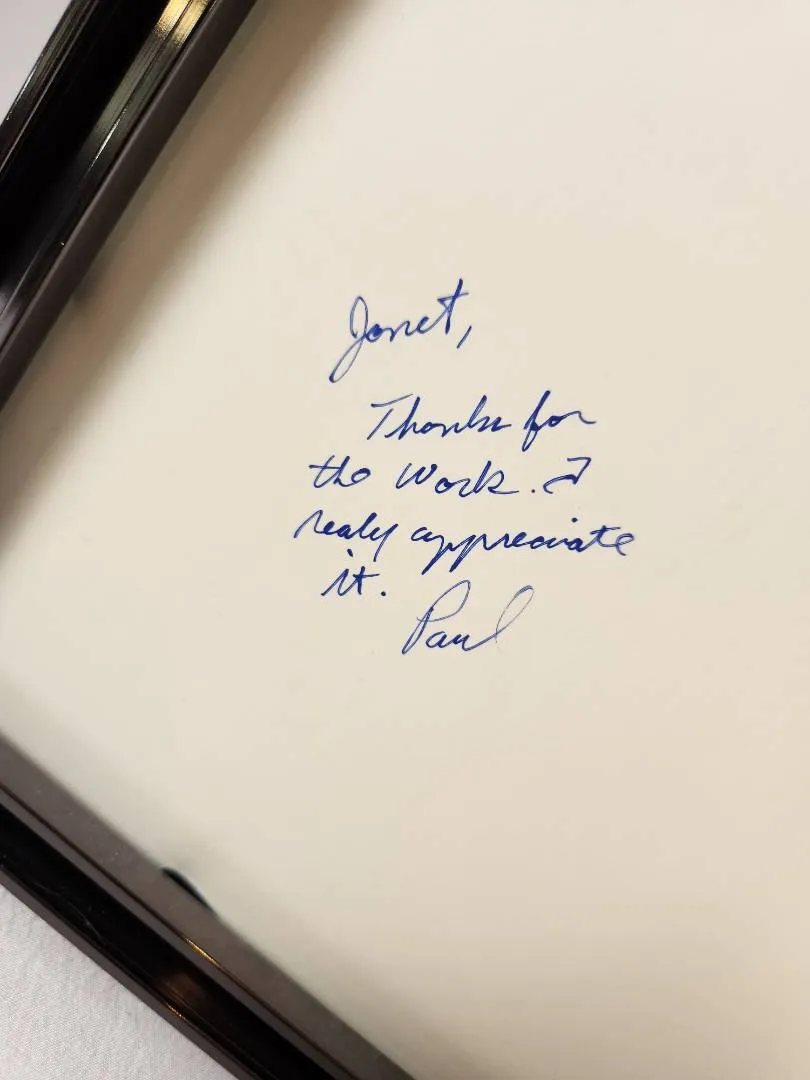 Janet,
Thanks for
the Work. I
realy appreciate
it.
Paul